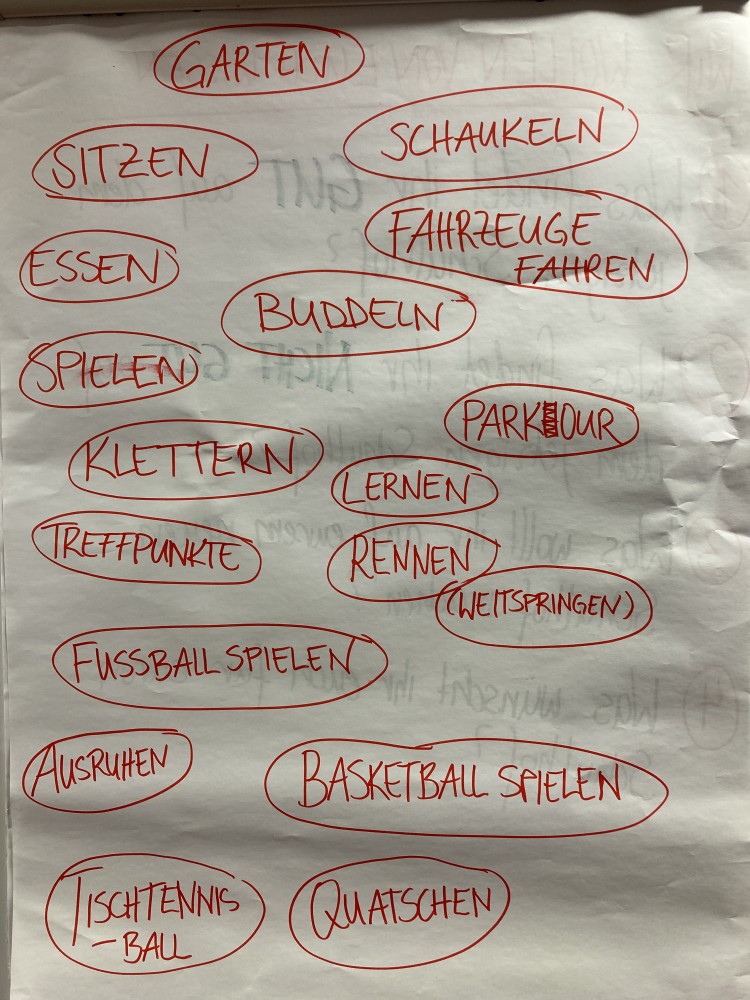 GARTEN
SCHAUKELN
SITZEN
FAHRZEUGE
FAHREN
ESSEN
BUDDELN
SPIELEN
PARKOUR
KLETTERN
LERNEN
TREFFPUNKTE
RENNEN
(WEITSPRINGEN)
FUSSBALL SPIELEN
AUSRUHEN
BASKETBALL SPIELEN
TISCHTENNIS
-BALL
QUATSCHEN